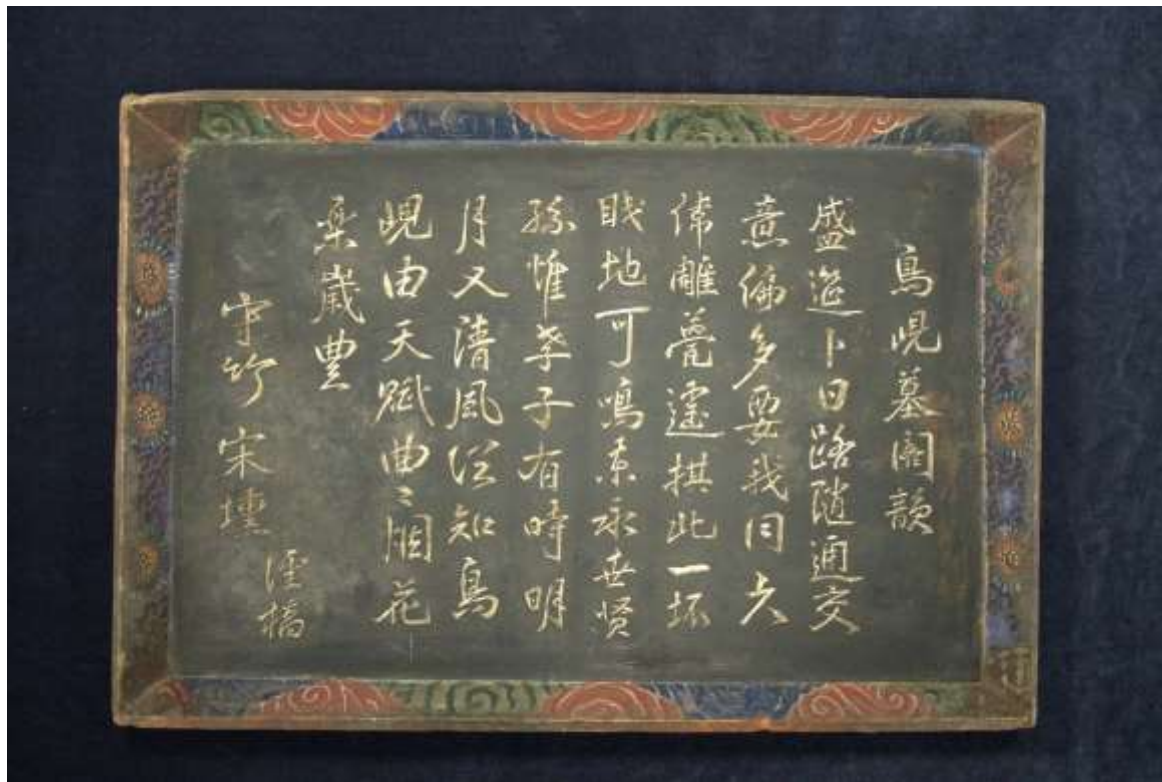 鳥峴墓閣韻
盛卜日路随通交
意偏多要我同六
偉雕甍遙拱北一坏
地可鳴東永世賢
孫惟孝子有時明
月又清風從知鳥
峴由天賦曲〻烟花
樂歲豊
橋
守竹宋壎